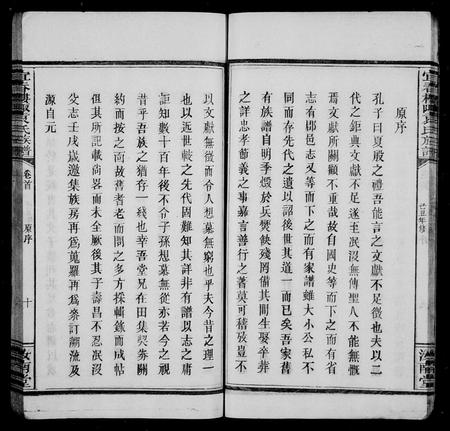 原序
孔子曰夏殷之禮吾能言之文獻不足徵也夫以二
代之鉅典文獻不足遂至泯沒無傳聖人不能無慨
焉文獻所關顧不重哉故自國史等而下之而有省
志有郡邑志又等而下之而有家譜雖大小公私不
同而存先代之遺以詔後世其道一而已矣吾家舊
有族譜自明季燬於兵燹缺殘罔備其間生娶卒葬
之詳忠孝節義之事嘉言善行之著莫可稽攷豈不
以文獻無徵而令人想墓無窮也乎夫今昔之理一
也以遠世較之先代固難知其詳非有譜以志之庸
詎知數十百年後不令子孫想墓無從亦若今之視
昔乎吾族之猶存一綫也幸吾堂兄在田集契券關
約而按之商故舊者老而問之多方採輯錄而成帖
但其所記載尚畧而未全厥後其子壽昌不忍泯沒
父志壬戌歲邀集族房再為蒐羅再為叅訂溯流及
源自元
宜春
袁氏族譜
卷首
原序
十
汝南堂